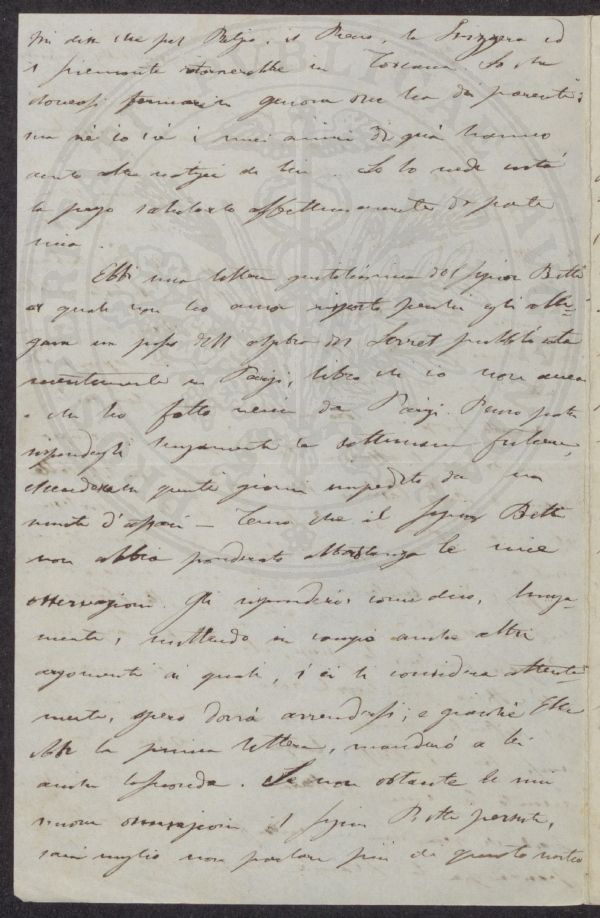 mi disse che pel Belgio, il Reno, la Svizzera ed
il piemonte ritornerebbe in Toscana. So che
dovea fermarsi in genova ove ha dei parenti;
ma nè io nè i miei amici di quà hanno
avuto altre notizie di lui. Se lo vede costà
la prego salutarlo affettuosamente da parte
mia.
Ebbi una lettera gentilissima del Signor Betti
al quale non ho ancor risposto perchè egli alle-
gava un passo dell'algebra del Serret pubblicata
recentemente in Parigi, libro che io non avea
e che ho fatto venire da Parigi. Penso poter
rispondergli lungamente la settimana futura,
essendone in questi giorni impedito da una
d'affari — Temo che il Signor Betti
non abbia ponderato abbastanza le mie
osservazioni. Gli risponderò, come dico, lunga-
mente, mettendo in campo anche altri
argomenti ai quali, s'ei li considera attenta-
mente, spero dovrà arrendersi; e giacchè Ella
ebbe la prima lettera, manderò a lei
anche la seconda. Se non ostante le mie
nuove osservazioni il Signor Betti persiste,
sarà meglio non parlare più di questo nostro